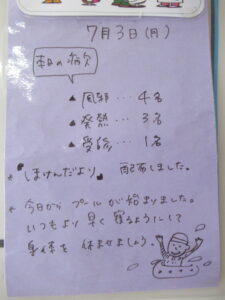 7月3日(月)
本日の病欠
▲ 風邪 … 4名
▲ 発熱 … 3名
▲ 受診 … 1名
* 『しまけんだより』 配布しました。
* 今日から プールが始まりました。
いつもより 早く 寝るようにして
身体を 休ませましょう。